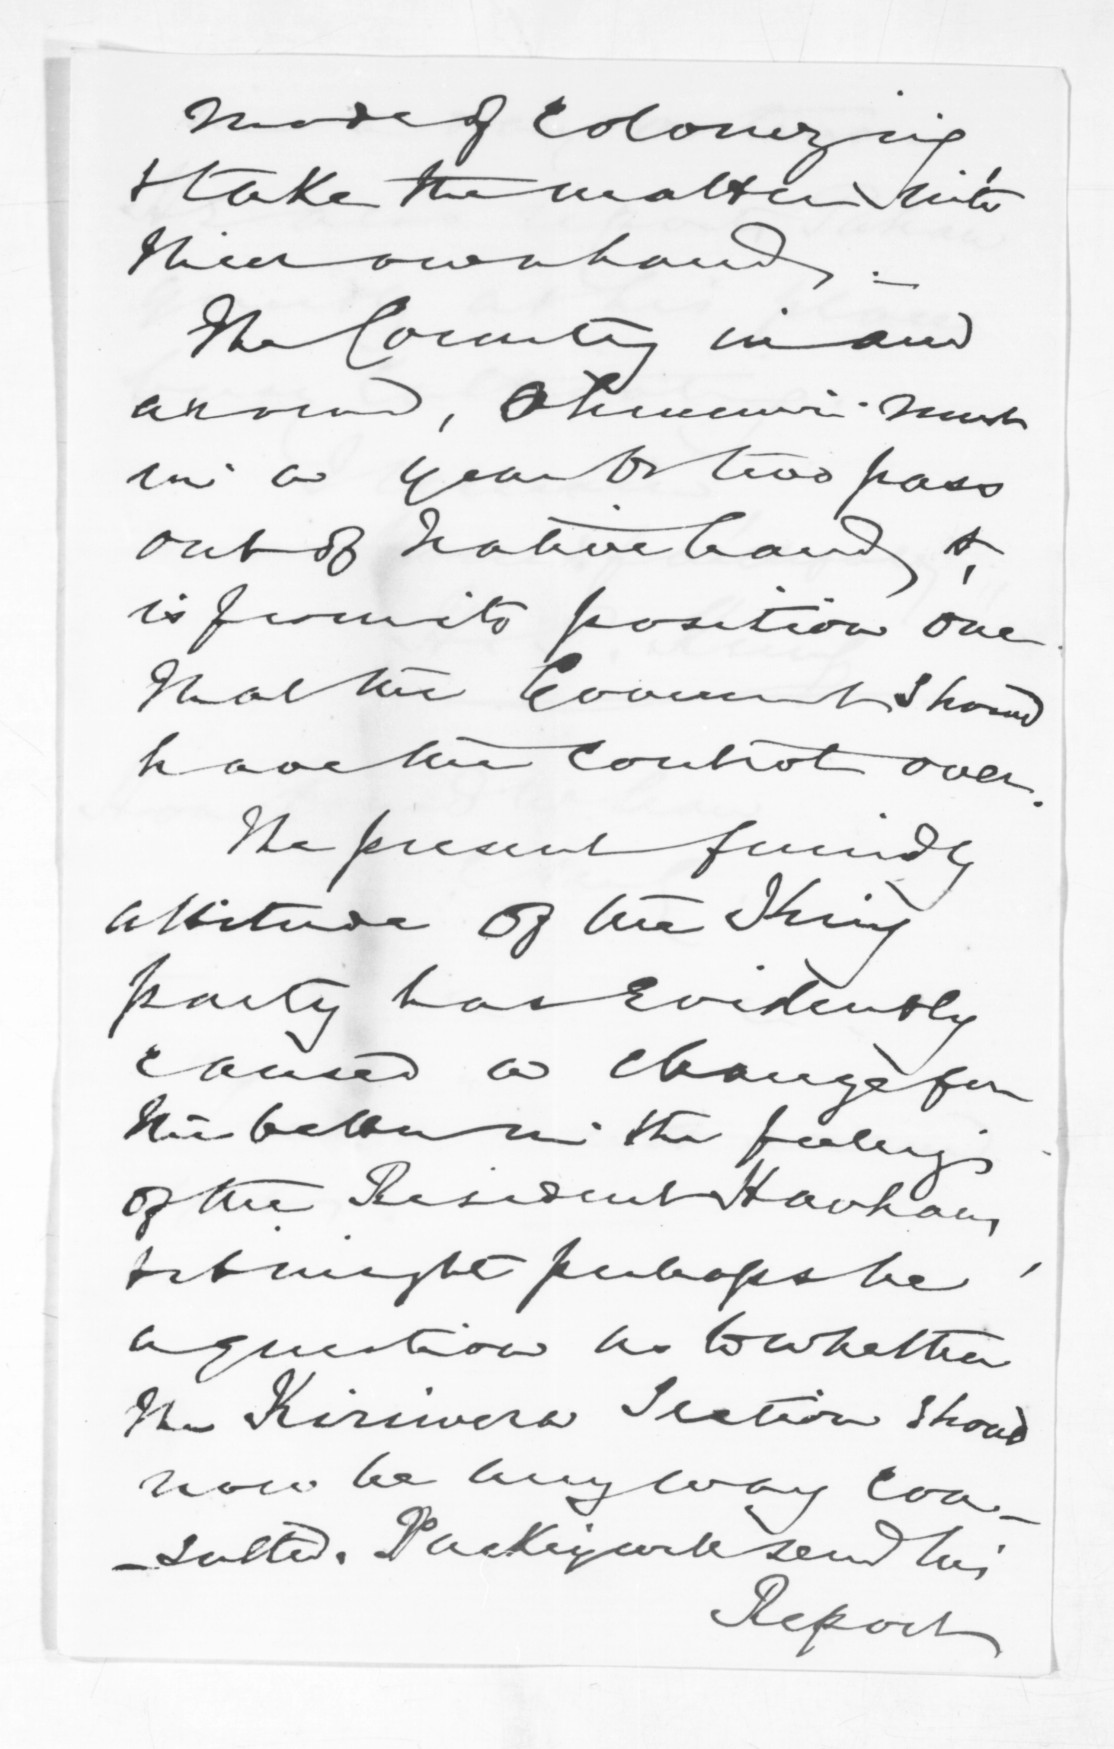 mode of Colonizing
& take the matter into
their own hands. _
The Country in and
around, Ohinemuri must
in a year or two pass
out of Native hands, &
is from its position one
that the Goverment should
have the control over.
The present friendly
attitude of the King
party has Evidently
caused a change for
the better in the feelings
of the Resident Hauhaus,
& it might perhaps be
a question as to whether
the Kiriwera Section should
now be any way con_
_sulted. Puckey will send his
Report